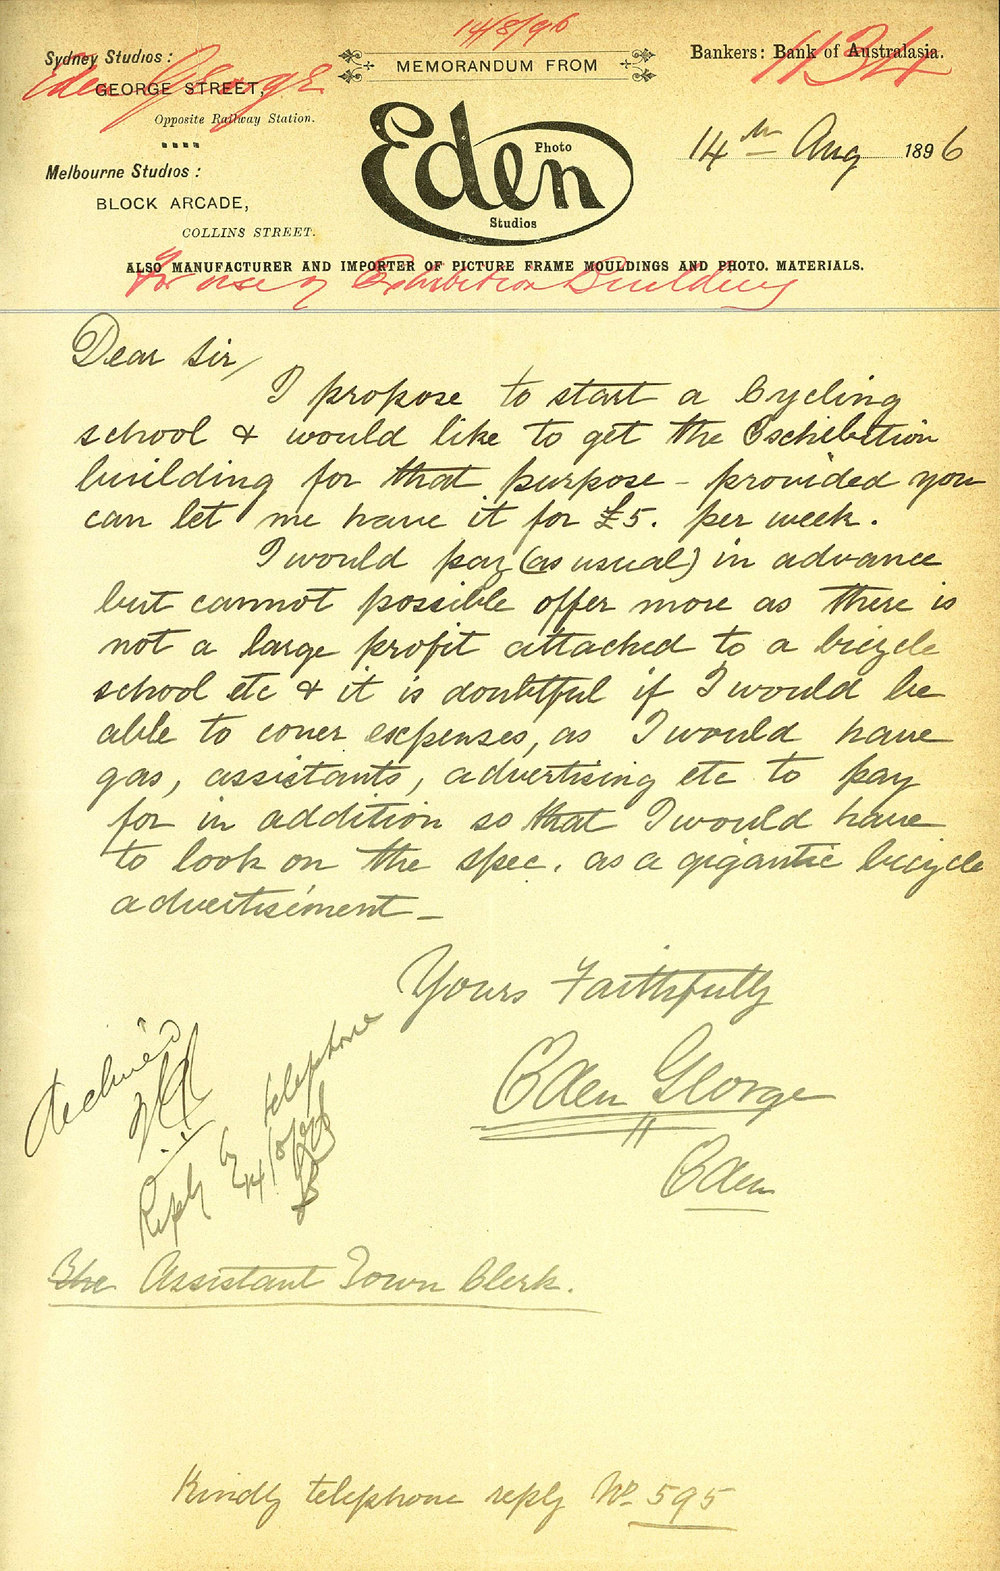 14/8/96
Sydney Studios:
GEORGE STREET,
Opposite Railway Station.
Eden George
Melbourne Studios:
BLOCK ARCADE,
COLLINS STREET.
MEMORANDUM FROM
Eden
Photo
Studios
Bankers: Bank of Australasia.
1134
14th Aug 1896
ALSO MANUFACTURER AND IMPORTER OF PICTURE FRAME MOULDINGS AND PHOTO. MATERIALS.
For use of Exhibition Building
Dear Sir,
I propose to start a Cycling
school & would like to get the Exhibition
building for that purpose - provided you
can let me have it for £5. per week.
I would pay (as usual) in advance
but cannot possible offer more as there is
not a large profit attached to a bicycle
school etc & it is doubtful if I would be
able to cover expenses, as I would have
gas, assistants, advertising etc to pay
for in addition so that I would have
to look on the spec. as a gigantic bicycle
advertisement -
Yours Faithfully
Eden George
Eden
declined
Reply by telephone
14/8/96
The Assistant Town Clerk.
Kindly telephone reply No 595